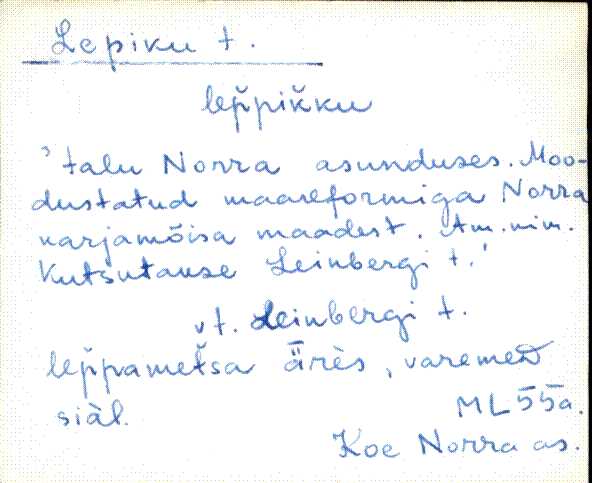 Lepiku t.
lep̌pik̆ku
' talu Norra asunduses. Moo-
dustatud maareformiga Norra
karjamõisa maadest. Am. nim.
Kutsutakse Leinbergi t.'
vt. Leinbergi t.
lep̆pamet̆sa ǟrès, varemeD
siàl.
ML 55a.
Koe Norra as.